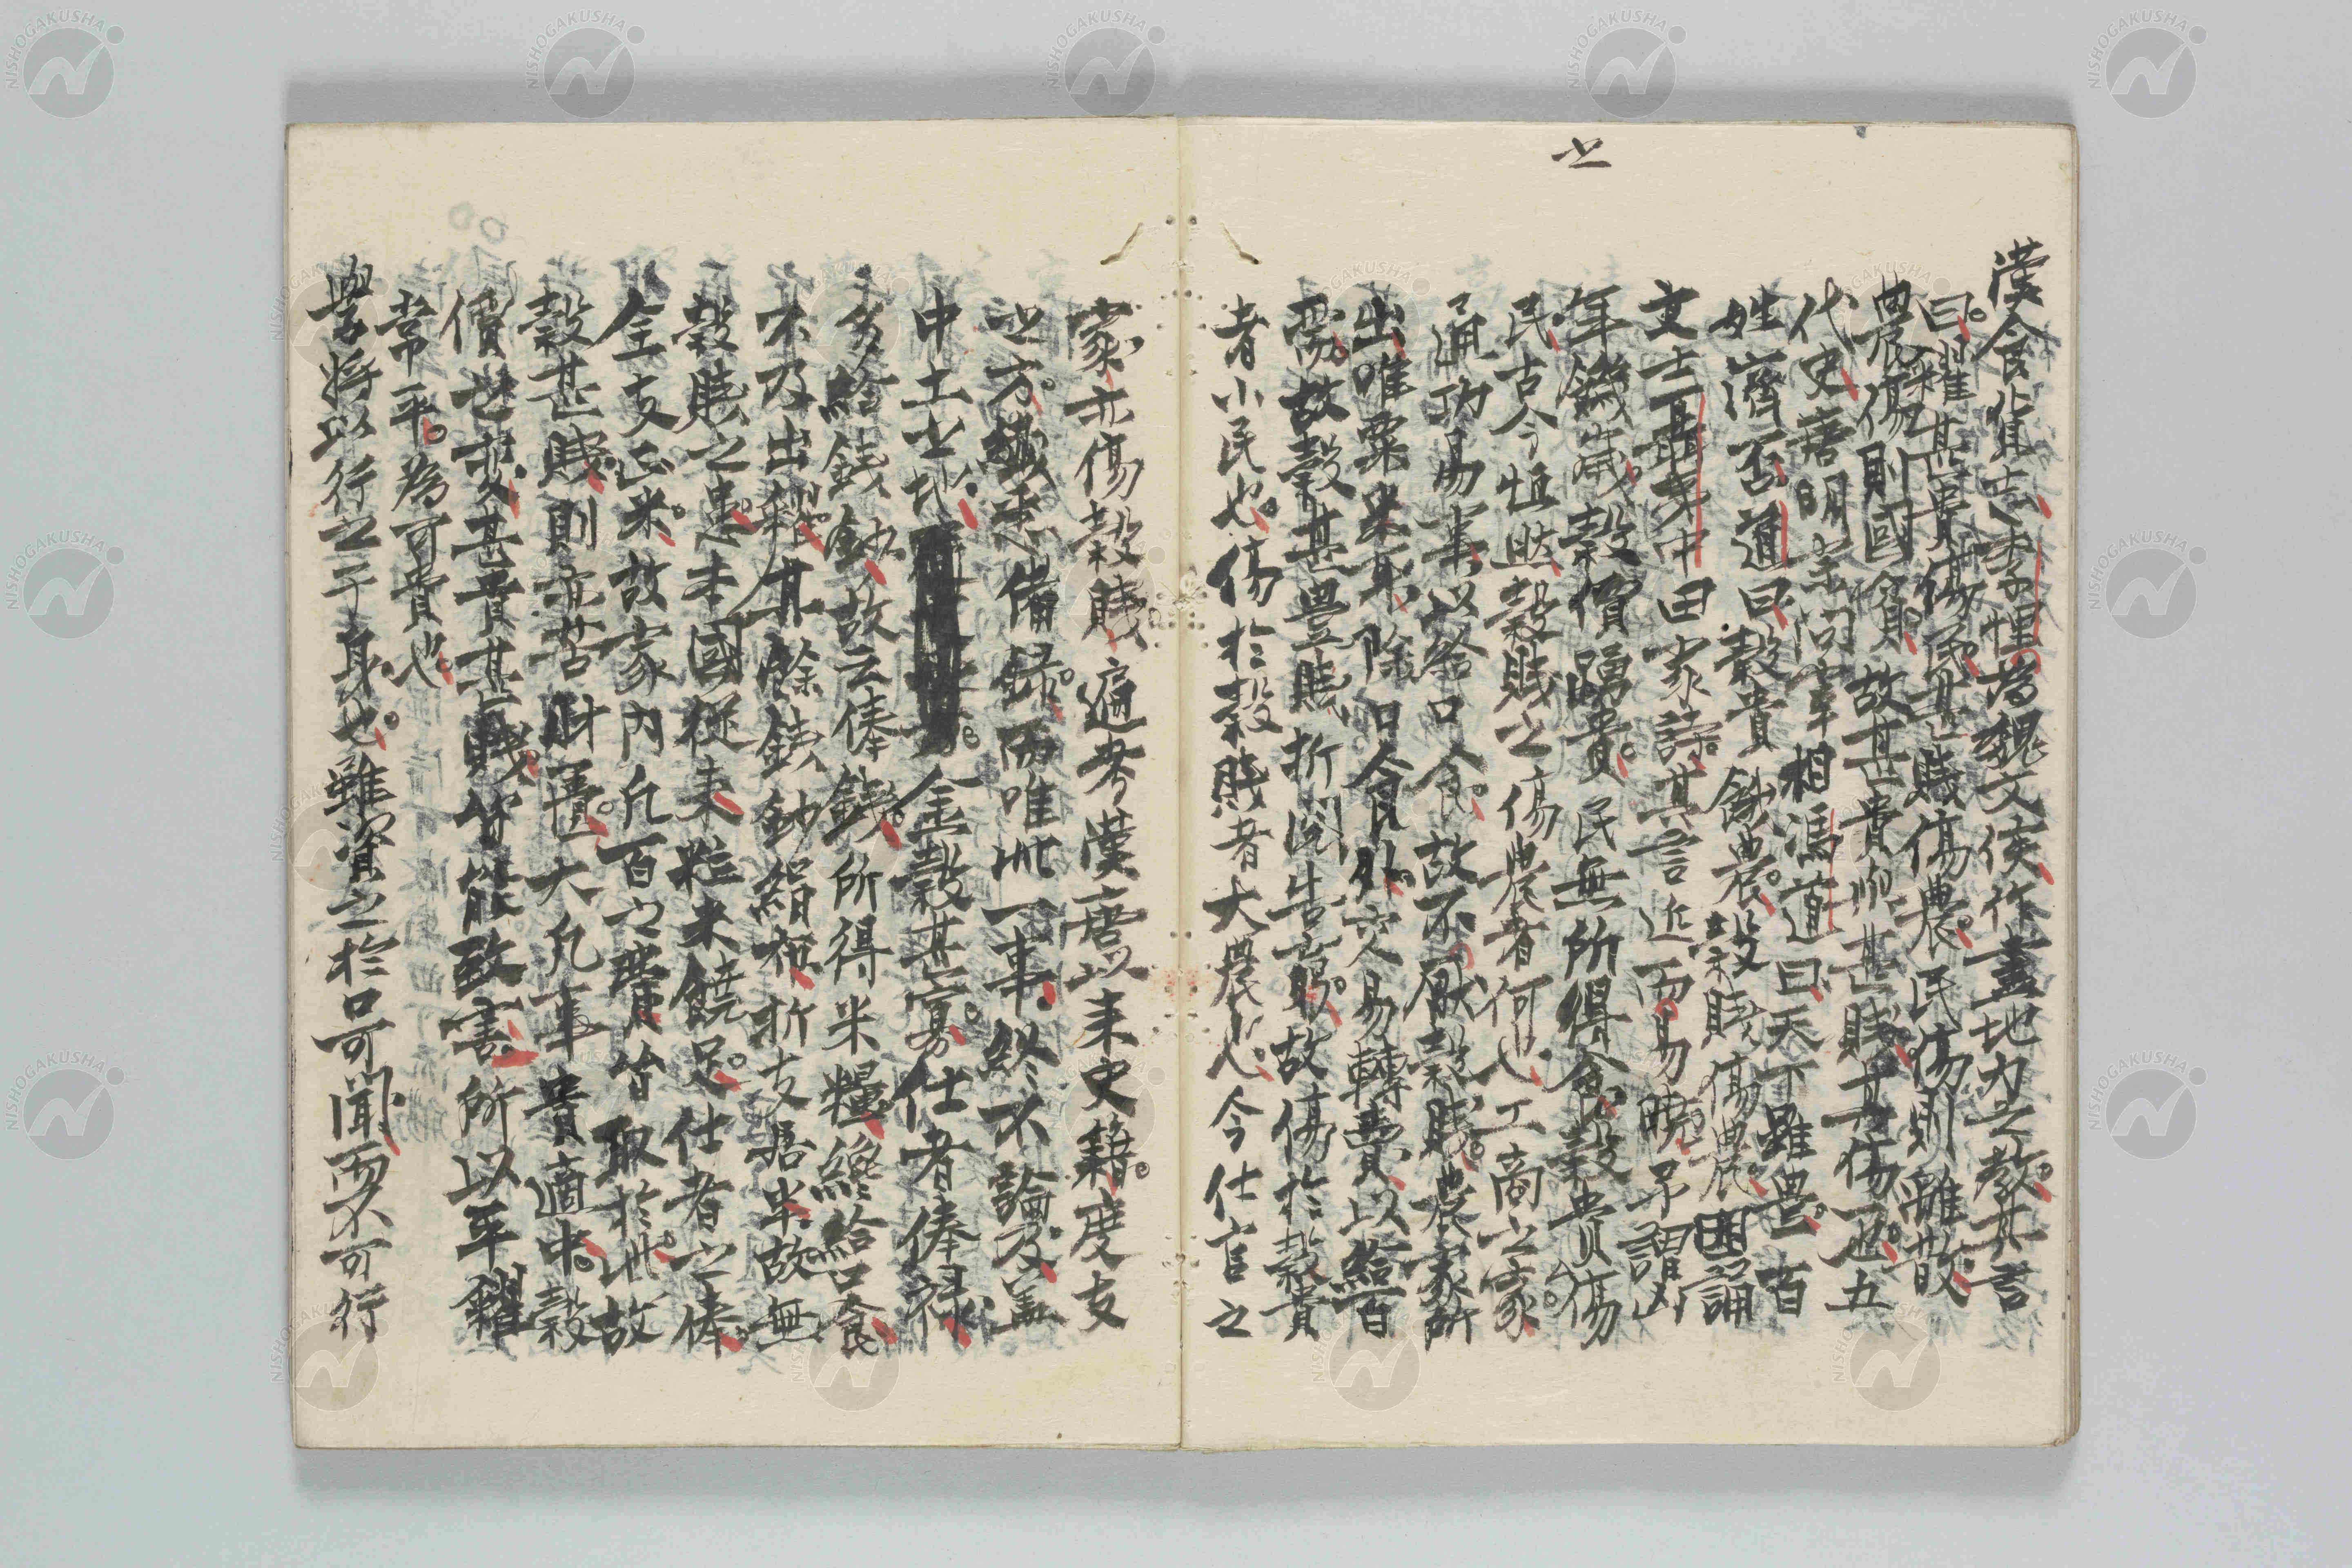 之
漢食貨志李悝為魏文侯作盡地力之教其言
曰糴甚貴傷民甚賤傷農民傷則離散
農傷則國貧故甚貴與甚賤其傷一也五
代史唐明宗問宰相馮道曰天下雖豊百
姓濟否道曰穀貴餓農穀賤傷農因誦
文士聶夷中田家詩其言近而易曉予謂凶
年饑歳穀價踊貴民無所得食穀貴傷
民古今恒然穀賤之傷農者何也工商之家
通功易事以給口食故不厭穀賤農家所
出唯粟米耳除口食外交易轉賣以給百
需故穀甚豊賤折閲告窮故傷於穀貴
者小民也傷於穀賤者大農也今仕官之
家亦傷穀賤遍考漢唐以来史籍度支
之方纖悉備録而唯此一事終不論及盖
中土之地金穀甚寡仕者俸禄
多給錢鈔故云俸錢所得米糧纔給口食
不及出糶其餘錢鈔絹布折支居半故無
穀賤之患本國從来粒米饒足仕者之俸
全支正米故家内凡百之費皆取於此故
穀甚賤則亦苦財匱大凡事貴適中穀
價甚貴甚賤皆能致害所以平糴
常平為可貴也
學将以行之于身也雖資之於口可聞而不可行